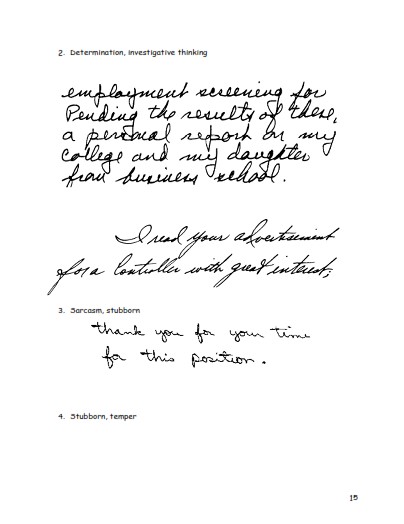 2. Determination, investigative thinking
employment screening for
Pending the results of these,
a personal report on my
college and my daughter
from business school.
I read your advertisement
for a Controller with great interest;
3. Sarcasm, stubborn
thank you for your time
for this position.
4. Stubborn, temper
15